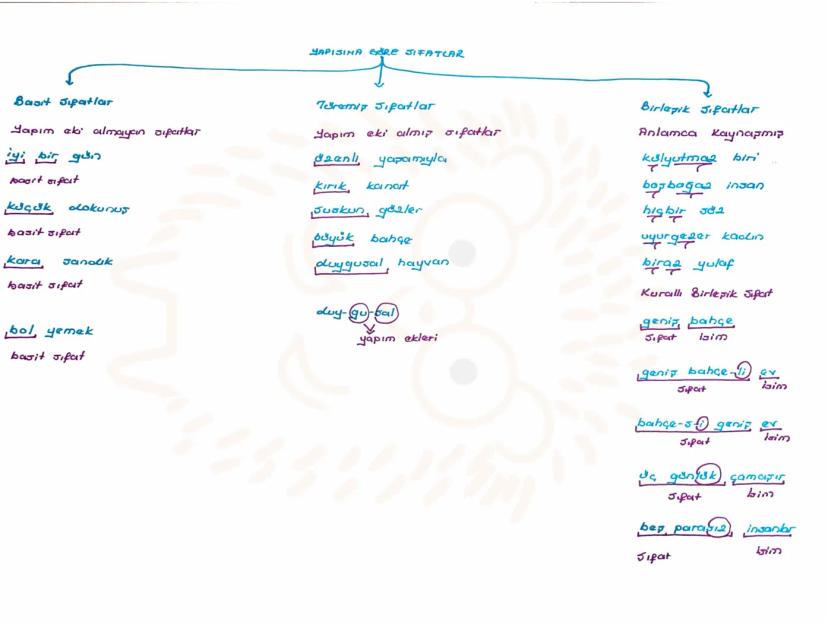 YAPISINA GÖRE SIFATLAR
Basit Sıfatlar
Yapım eki almayan sıfatlar
iyi bir gün
basit sıfat
küçük dokunuş
basit sıfat
kara sandık
basit sıfat
bol yemek
basit sıfat
Türemiş Sıfatlar
Yapım eki almış sıfatlar
özenli yapamıyla
kırık kanat
suskun gözler
büyük bahçe
duygusal hayvan
duy-gu-sal
yapım ekleri
Birleşik Sıfatlar
Anlamca Kaynaşmış
külyutmaz biri
boşboğaz insan
hiçbir söz
uyurgezer kadın
biraz yulaf
Kurallı Birleşik Sıfat
geniş bahçe
sıfat isim
geniş bahçe-li ev
sıfat isim
bahçe-s-i geniş ev
sıfat isim
üç günlük çamaşır
sıfat isim
beş parasız insanlar
sıfat isim